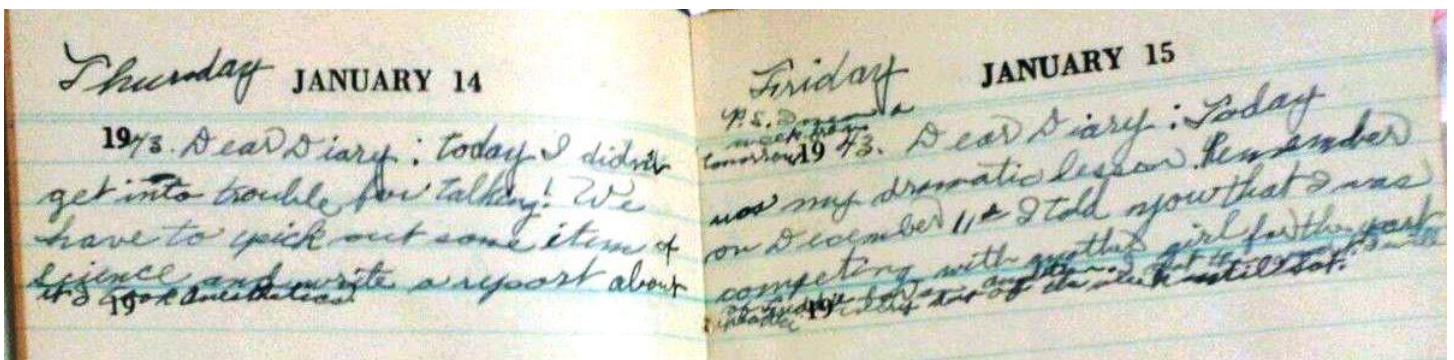 Thursday JANUARY 14
1943. Dear Diary: Today I didn't
get into trouble for talking! We
have to pick out some item of
science and write a report about
it I took Anesthetics.
19
Friday JANUARY 15
P.S. a
week from
tomorrow 19 43. Dear Diary: Today
was my dramatic lesson. Remember
on December 11th I told you that I was
competing with another girl for the part
of I got the part I will
19 every day of the week until Sat.